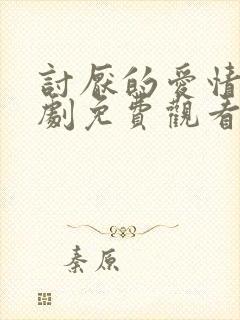 討厭的愛情
劇免費觀看
秦原